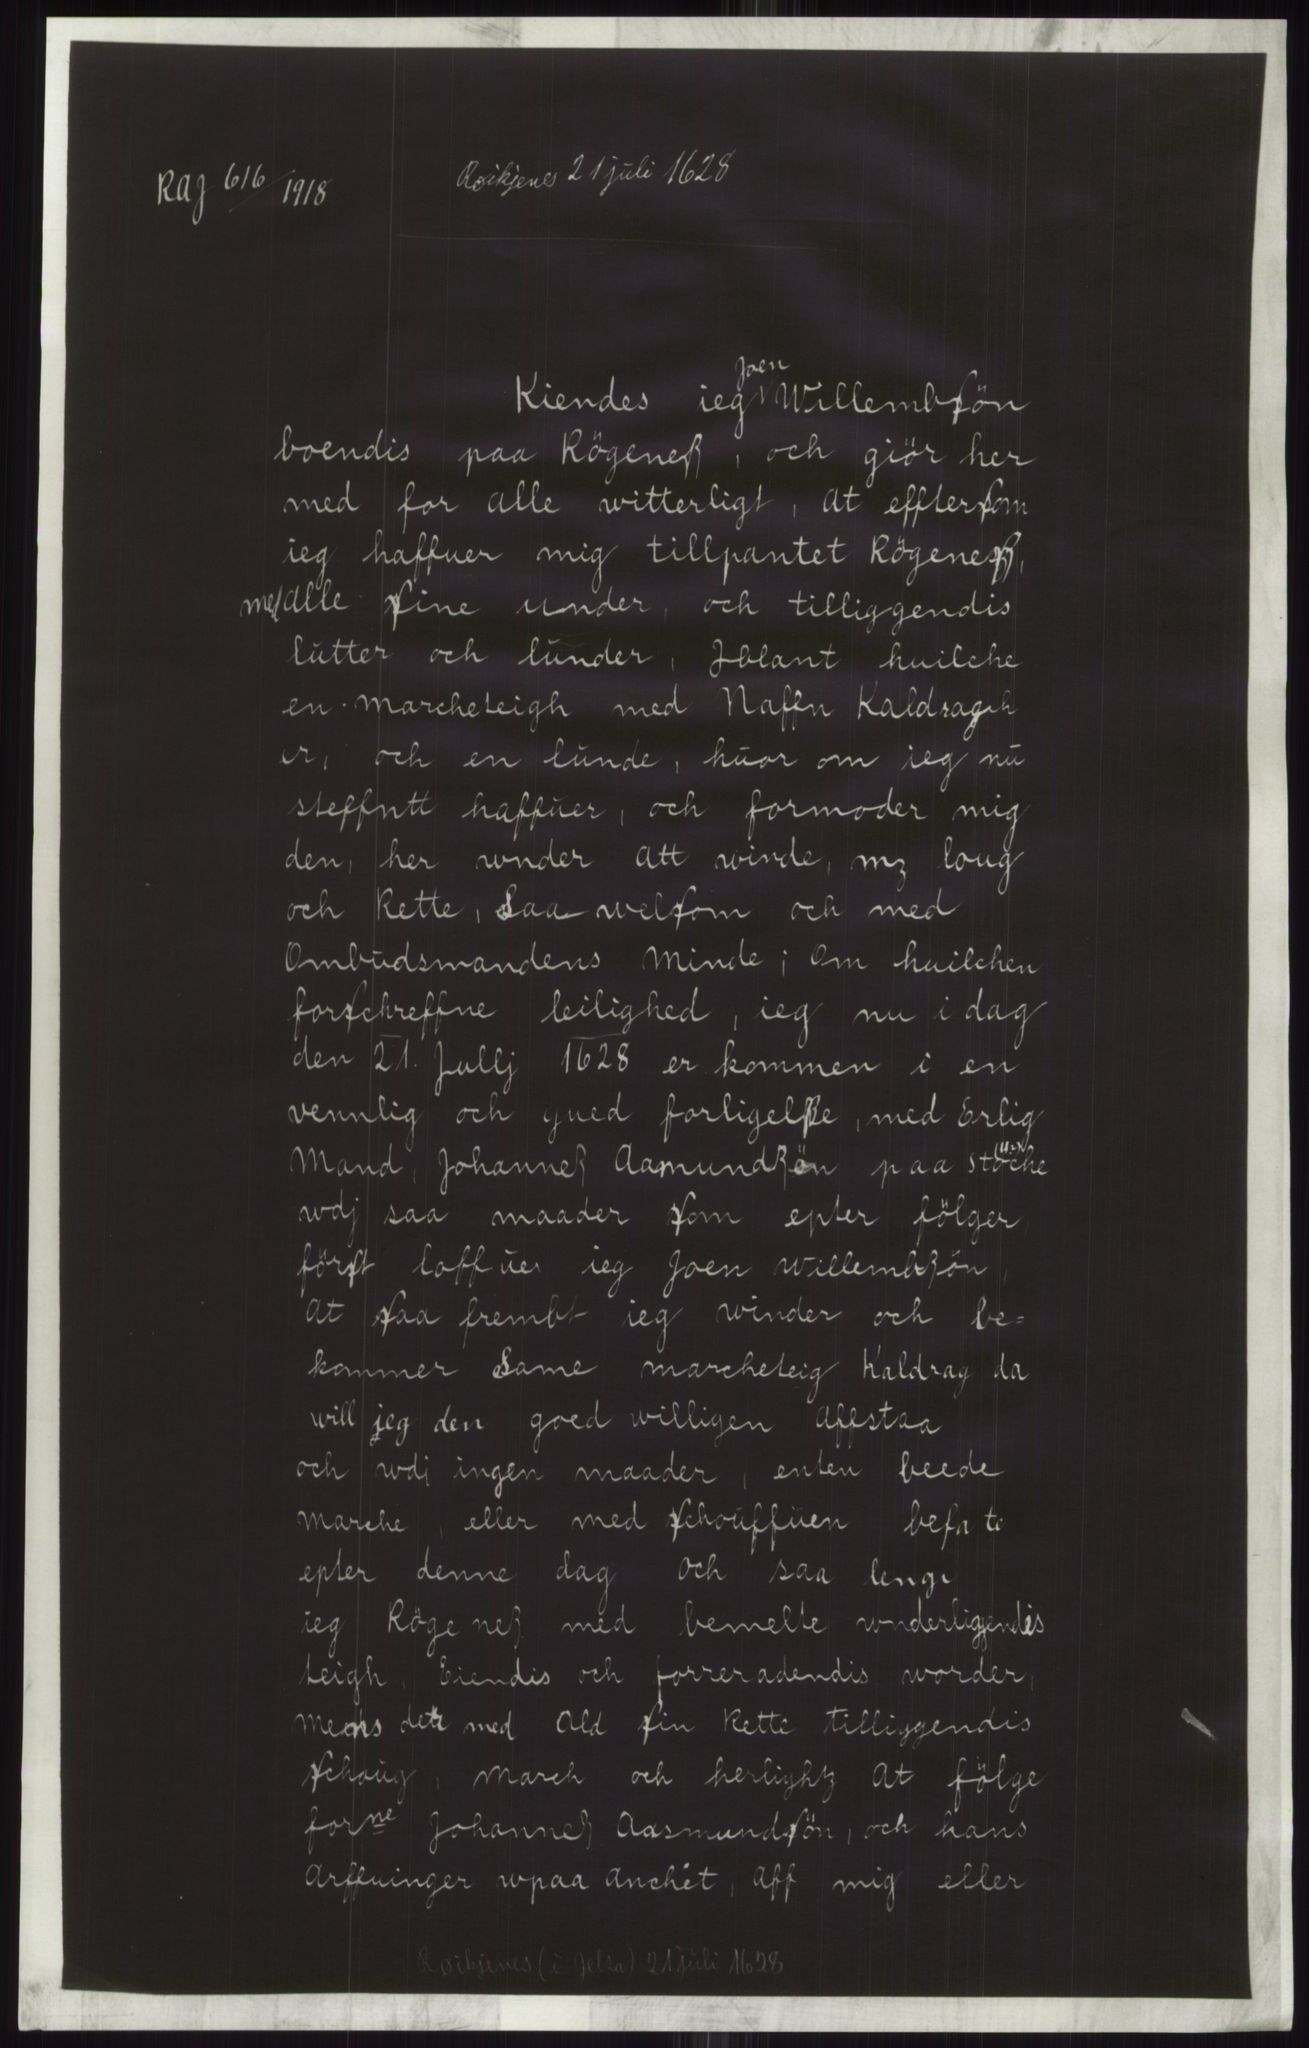 RAJ 616/1918
Røikjenes 21 juli 1628
Joen
Kiendes ieg Willembsön
boendis paa Rögeneß, och giör her
med for alle witterligt, at efftersom
ieg haffuer mig tillpantet Rögeneß,
mz alle sine under, och tilliggendis
lutter och lunder, Jblant huilche
en marcheteigh med Naffn Kaldragh
er, och en lunde, huor om ieg nu
steffntt haffuer, och formoder mig
den, her wnder att winde, mz loug
och Rette, Saa welsom och med
Ombudsmandens Minde; Om huilchen
forschreffne leilighed, ieg nu i dag
den 21. Jullj 1628 er kommen i en
vennlig och gued forligelße, med Erlig
Mand, Johanneß Aamundßön paa stöche
wdj saa maader som epter fölger,
först loffuer ieg Joen Willembßön,
At saa frembt ieg winder och be=
kommer Same marcheteig Kaldrag da
will jeg den goed willigen affstaa
och wdj ingen maader, enten beede
marche, eller med schouffuen befate
epter denne dag och saa lenge
ieg Rögeneß med bemelte wnderliggendis
teigh, Eiendis och forreradendis worder,
Mens dete med Ald sin Rette tilliggendis
schoug, march och herlighz At fölge
forne Johanneß Aasmundsön, och hans
Arffuinger wpaa Anchet, Aff mig eller
Røikjenes (i Jelsa) 21 juli 1628